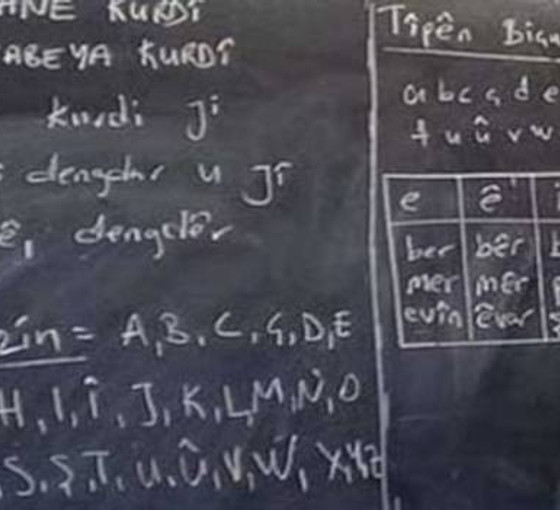 ANE KURDÎ
ABEYA KURDÎ
kurdi ji
dengdar u jî
ê, dengdêr
zîn = A, B, C, Ç, D, E
H, I, Î, J, K, L, M, N, O
S, Ş, T, U, Û, V, W, X, Y, Z
Tîpên
a b c ç d e
t u û v w
e ê
ber bêr
mer mêr
evîn êvar